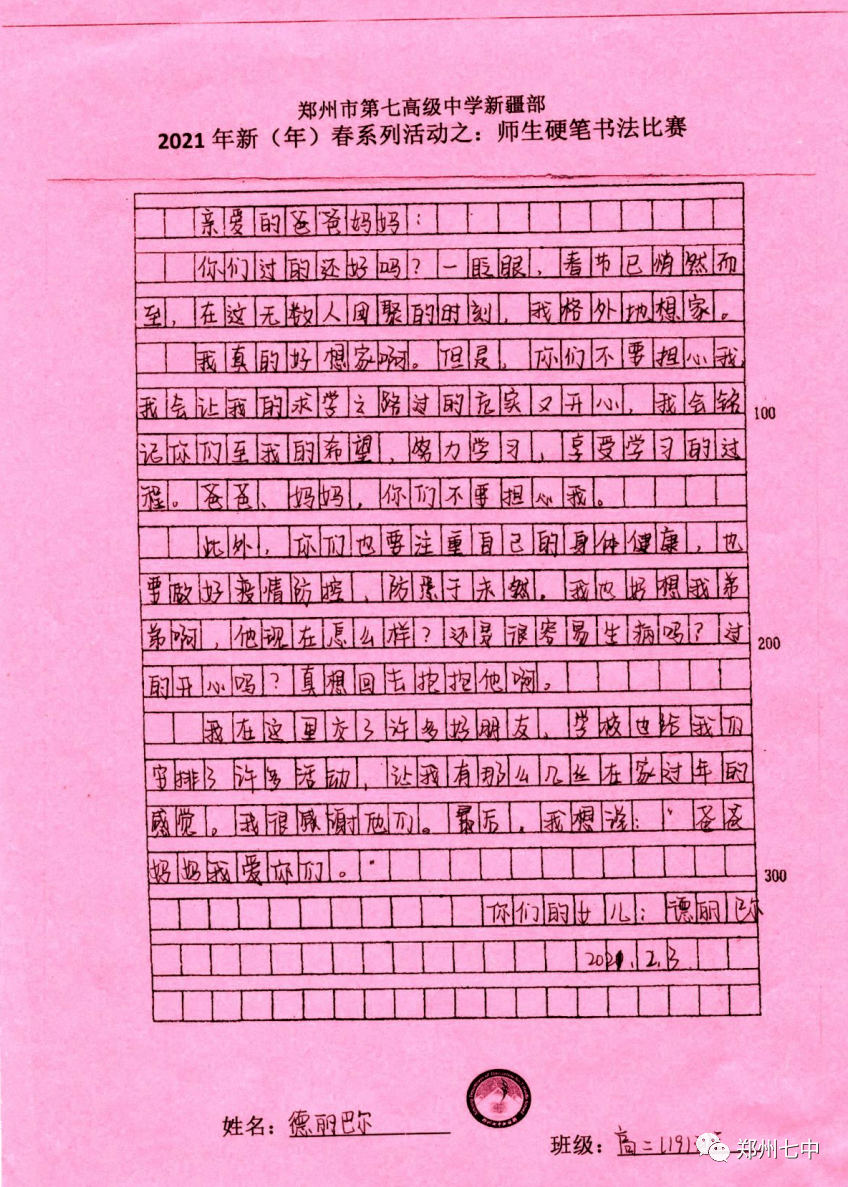 郑州市第七高级中学新疆部
2021年新（年）春系列活动之：师生硬笔书法比赛
亲爱的爸爸妈妈：
你们过的还好吗？一眨眼，春节已悄然而
至，在这无数人团聚的时刻，我格外地想家。
我真的好想家啊。但是，你们不要担心我，
我会让我的求学之路过的充实又开心，我会铭
100
记你们至我的希望，努力学习，享受学习的过
程。爸爸、妈妈，你们不要担心我。
此外，你们也要注重自己的身体健康，也
要做好疫情防控，防患于未然。我也好想我弟
弟啊，他现在怎么样？还是很容易生病吗？过
200
的开心吗？真想回去抱抱他啊。
我在这里交了许多好朋友，学校也给我们
安排了许多活动，让我有那么几丝在家过年的
感觉。我很感谢他们。最后，我想说：“爸爸
妈妈我爱你们。”
300
你们的女儿：德丽巴尔
2021.2.3
姓名：德丽巴尔
班级：高二(19)
郑州七中